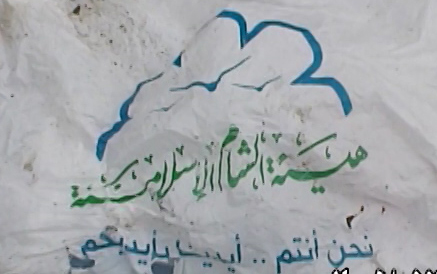 هيئة الشام الإسلامية
نحن أنتم .. أيدينا بأيديكم